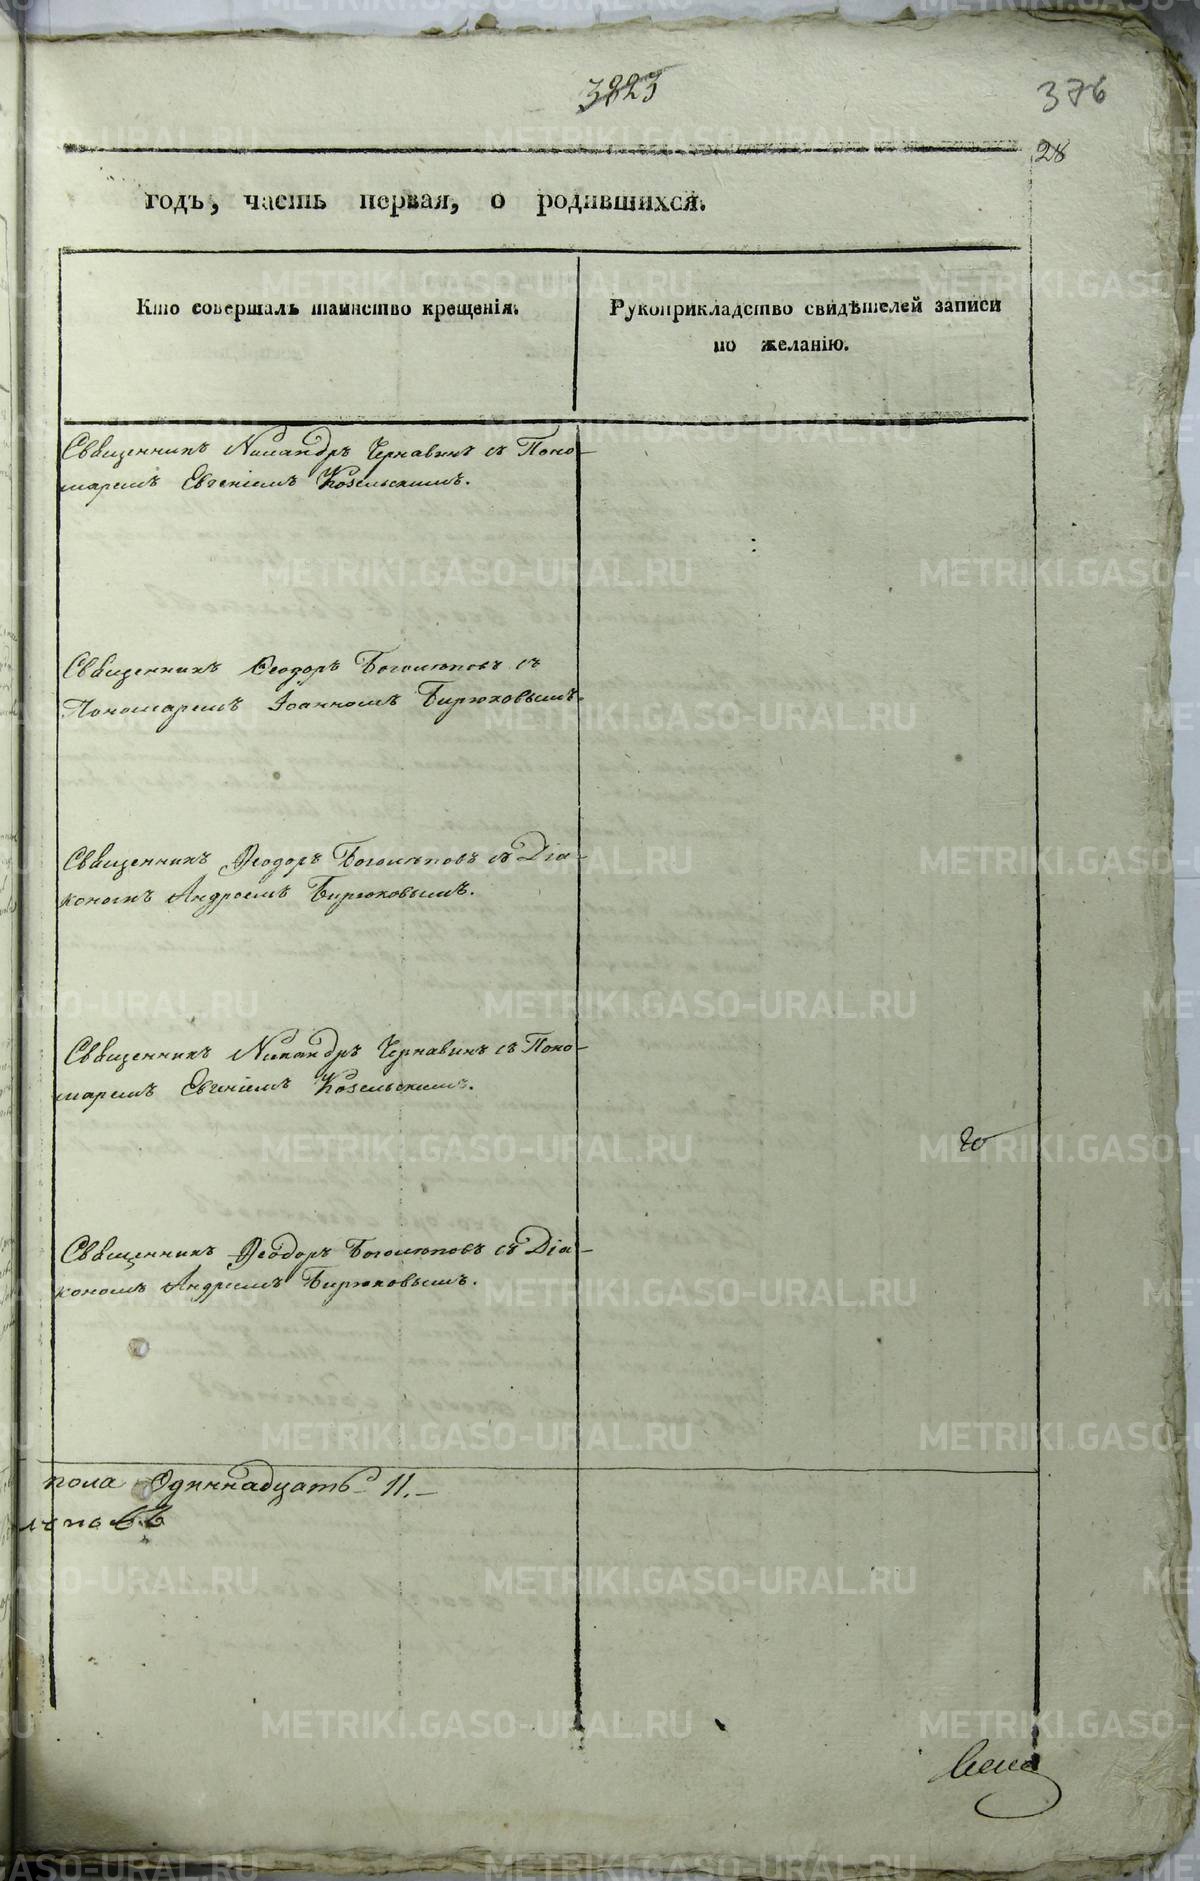 3823
376
28
годъ, часть первая, о родившихся.
Кто совершалъ таинство крещенія.
Рукоприкладство свидѣтелей записи
по желанію.
Священникъ Никандръ Чернавинъ съ Поно-
маремъ Евгеніемъ Козельскимъ.
Священникъ Ѳеодоръ Боголюповъ съ
Пономаремъ Іоанномъ Бирюковымъ.
Священникъ Ѳеодоръ Боголюповъ съ Діа-
кономъ Андреемъ Бирюковымъ.
Священникъ Никандръ Чернавинъ съ Поно-
маремъ Евгеніемъ Козельскимъ.
Священникъ Ѳеодоръ Боголюповъ съ Діа-
кономъ Андреемъ Бирюковымъ.
пола Одиннадцать 11.
METRIKI.GASO-URAL.RU